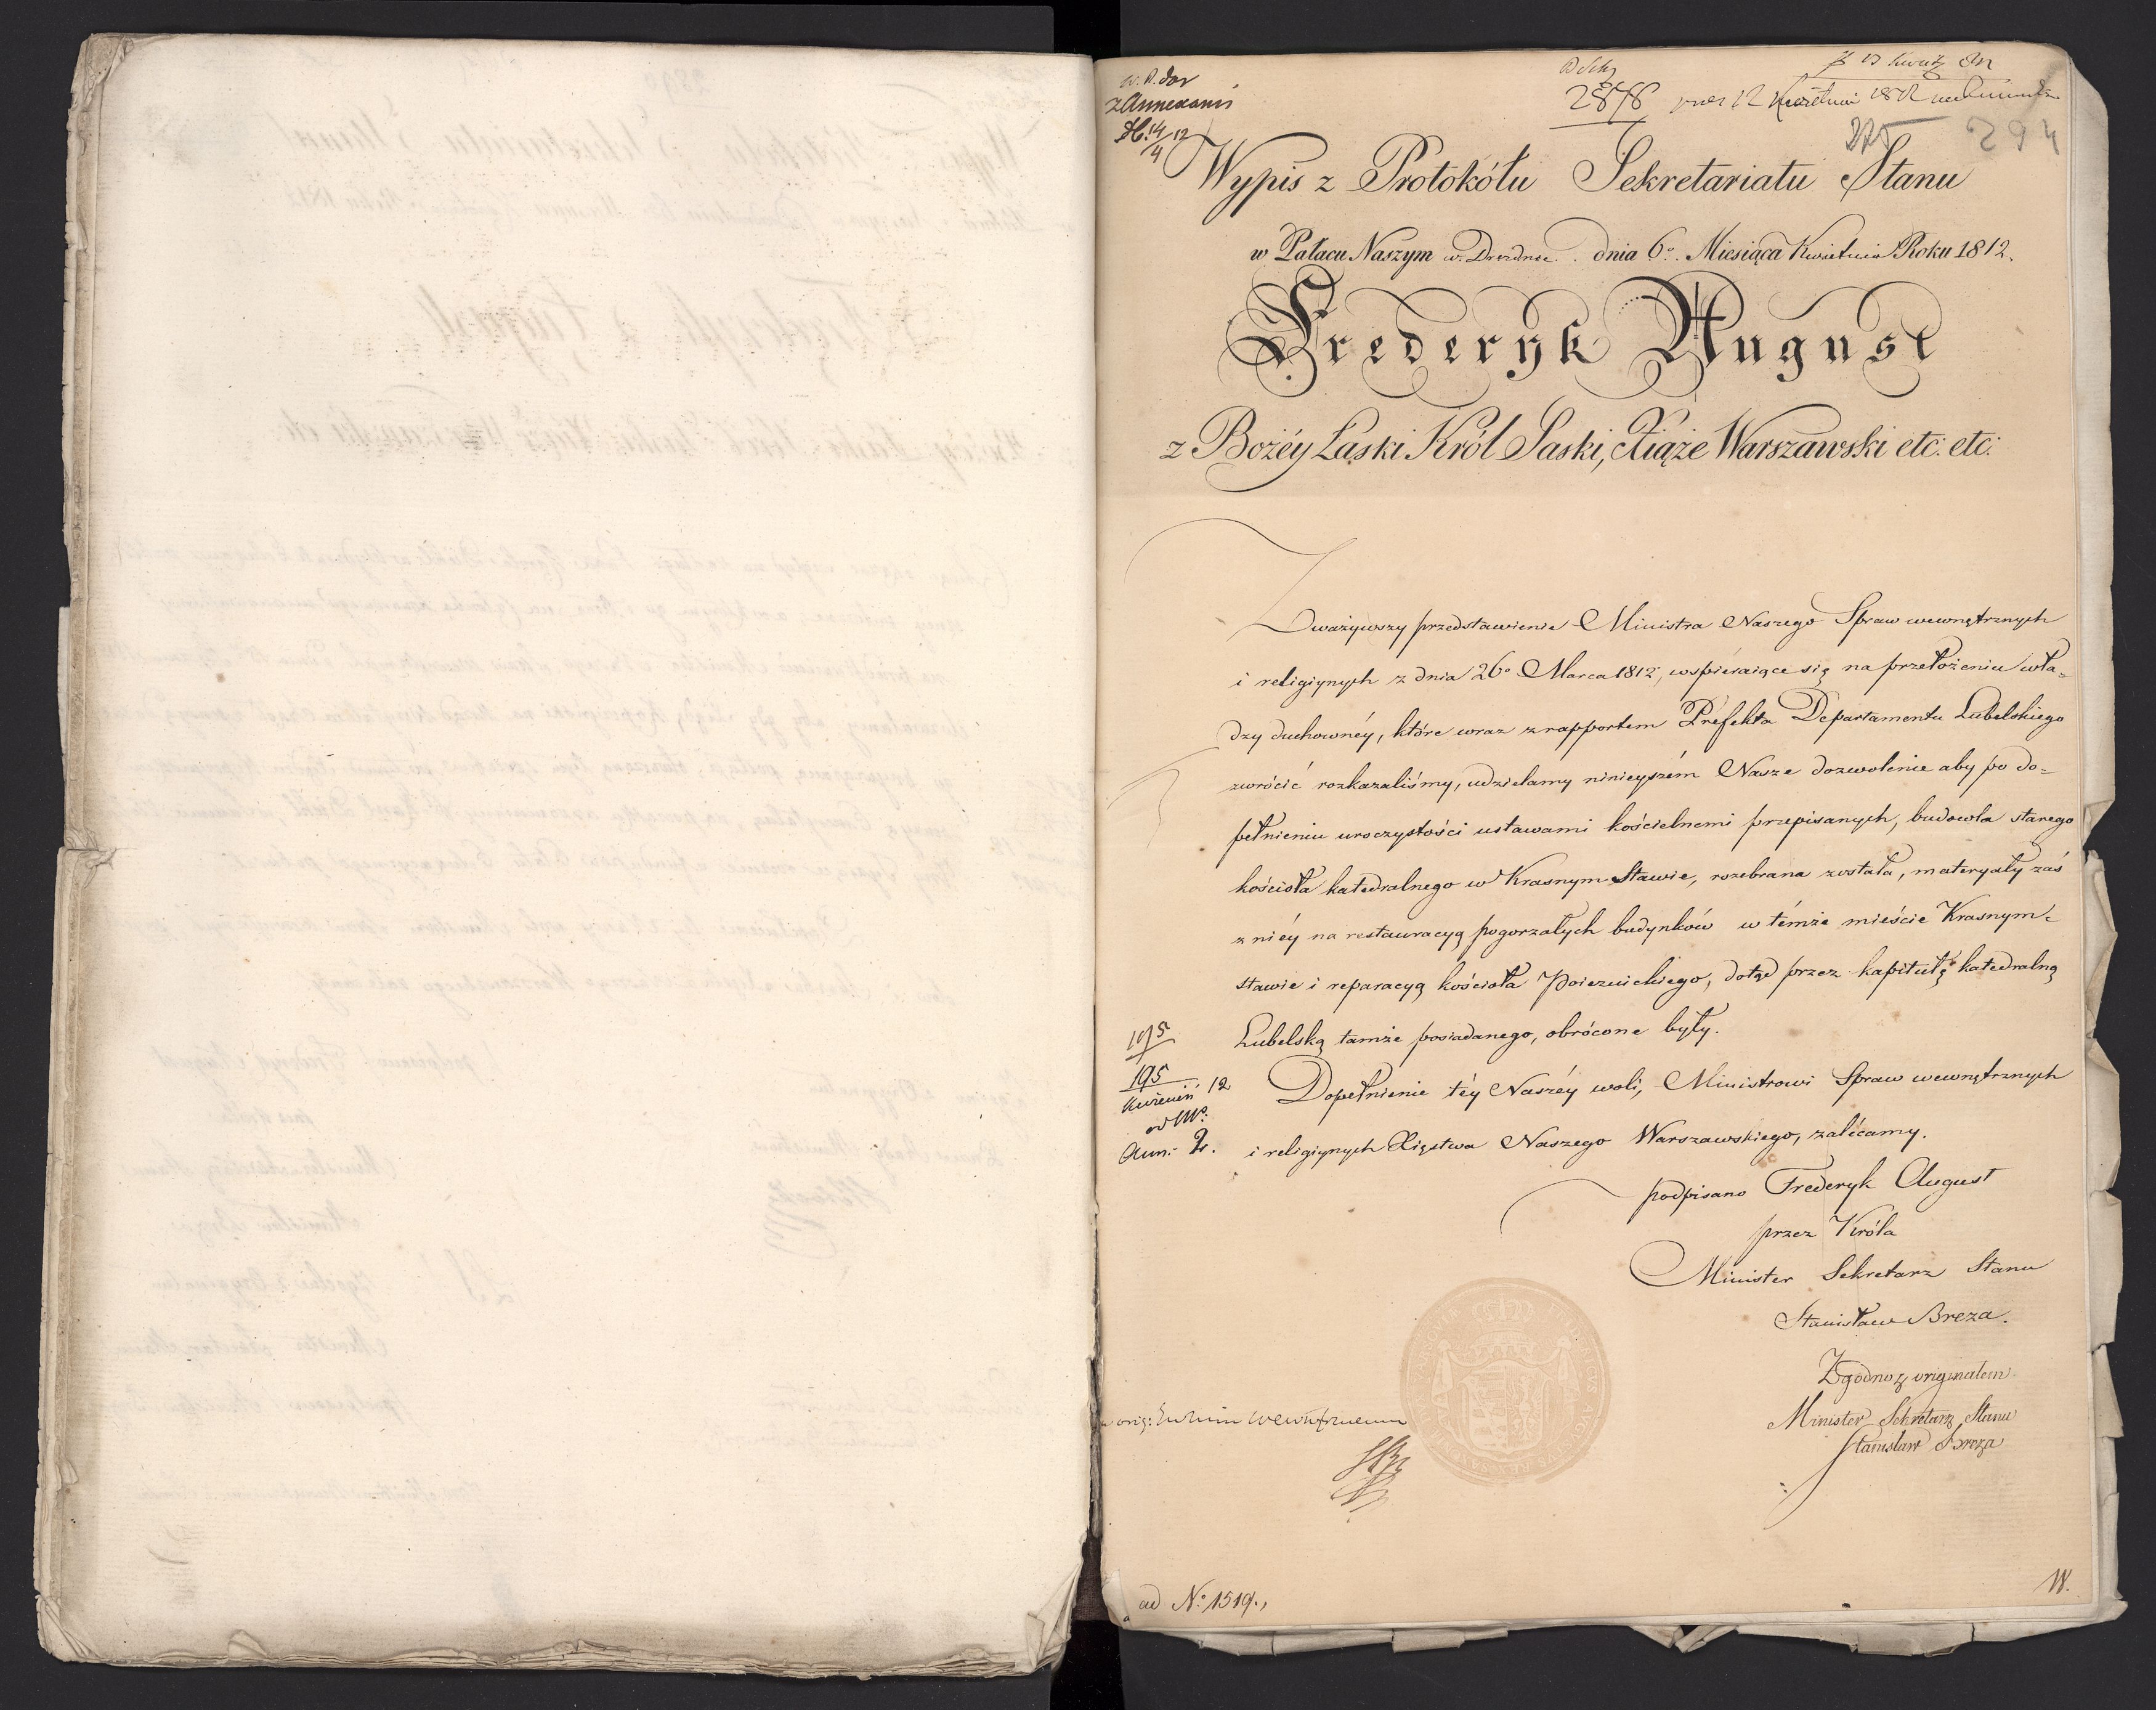 zAnnexami
2878
294
Wypis z Protokółu Sekretariatu Stanu
w Pałacu Naszym w Dreźnie. dnia 6º. Miesiąca Kwietnia Roku 1812.
Frederyk August
z Bożéy Łaski Król Saski, Xiąże Warszawski etc: etc:
Zważywszy przedstawienie Ministra Naszego Spraw wewnętrznych
i religiynych z dnia 26º Marca 1812, wspieraiące się na przełożeniu wła=
dzy duchownéy, które wraz z rapportem Prefekta Departamentu Lubelskiego
zwrócić rozkazaliśmy, udzielamy ninieyszém Nasze dozwolenie aby po do=
pełnieniu uroczystości ustawami kościelnemi przepisanych, budowla starego
kościoła katedralnego w Krasnym Stawie, rozebrana została, materyały zaś
z niéy na restauracyą pogorzałych budynków w témże mieście Krasnym=
stawie i reparacyą kościoła Poiezuickiego, dotąd przez kapitułę katedralną
Lubelską tamże posiadanego, obrócone były.
195
195
Kwiecień 12
Ann: 2.
Dopełnienie téy Naszéy woli, Ministrowi Spraw wewnętrznych
i religiynych Xięstwa Naszego Warszawskiego, zalécamy.
podpisano Frederyk August
przez Króla
Minister Sekretarz Stanu
Stanisław Breza.
Zgodno z originałem
Minister Sekretarz Stanu
Stanisław Breza
ad Nº 1519.,
W.